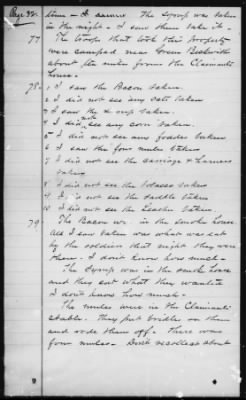 Page 32.
time - I assure The Syrup was taken
in the night - I saw them take it.
77 The troops that took this property
were camped near Green Beckwith
about six miles from the Claimants
house.
78 - 1 I saw the Bacon taken.
2 I did not see any oats taken
3 I saw the syrup taken.
4 I did not see any corn taken.
5 I did not see any fodder taken
6 I saw the four mules taken
7 I did not see the carriage & harness
taken
8 I did not see the tobacco taken
9 I did not see the saddle taken
10 I did not see the leather taken.
79 The Bacon was in the smoke house
All I saw taken was what was eat
by the soldiers that night they were
there. I don't know how much -
The Syrup was in the smoke house
and they eat what they wanted
I don't know how much.
The mules were in the Claimants
stable. They put bridles on them
and rode them off. There was
four mules - Don't recollect about